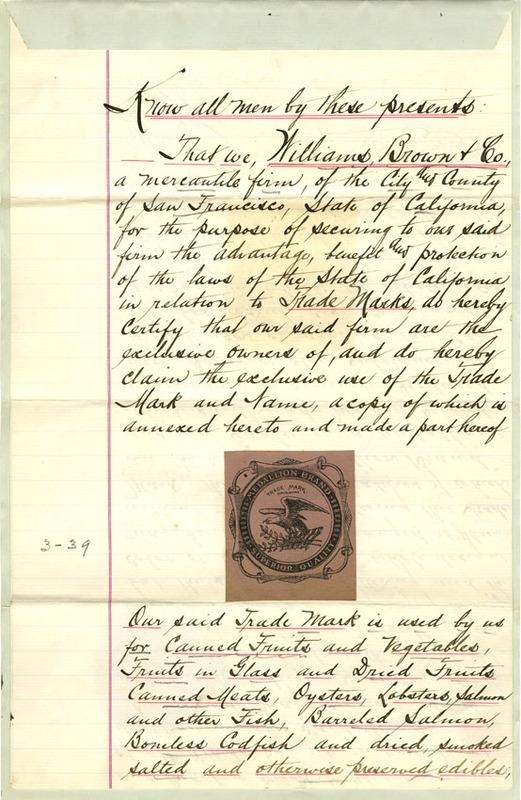 Know all men by these presents:
That we, Williams, Brown & Co.,
a mercantile firm, of the City and County
of San Francisco, State of California,
for the purpose of securing to our said
firm the advantage, benefit and protection
of the laws of the State of California
in relation to Trade Marks, do hereby
Certify that our said firm are the
exclusive owners of, and do hereby
claim the exclusive use of the Trade
Mark and Name, a copy of which is
annexed hereto and made a part hereof
MEDALLION BRAND
TRADE MARK
SUPERIOR QUALITY
3-39
Our said Trade Mark is used by us
for Canned Fruits and Vegetables,
Fruits in Glass and Dried Fruits
Canned Meats, Oysters, Lobsters, Salmon
and other Fish, Barreled Salmon,
Boneless Codfish and dried, smoked
salted and otherwise preserved edibles,